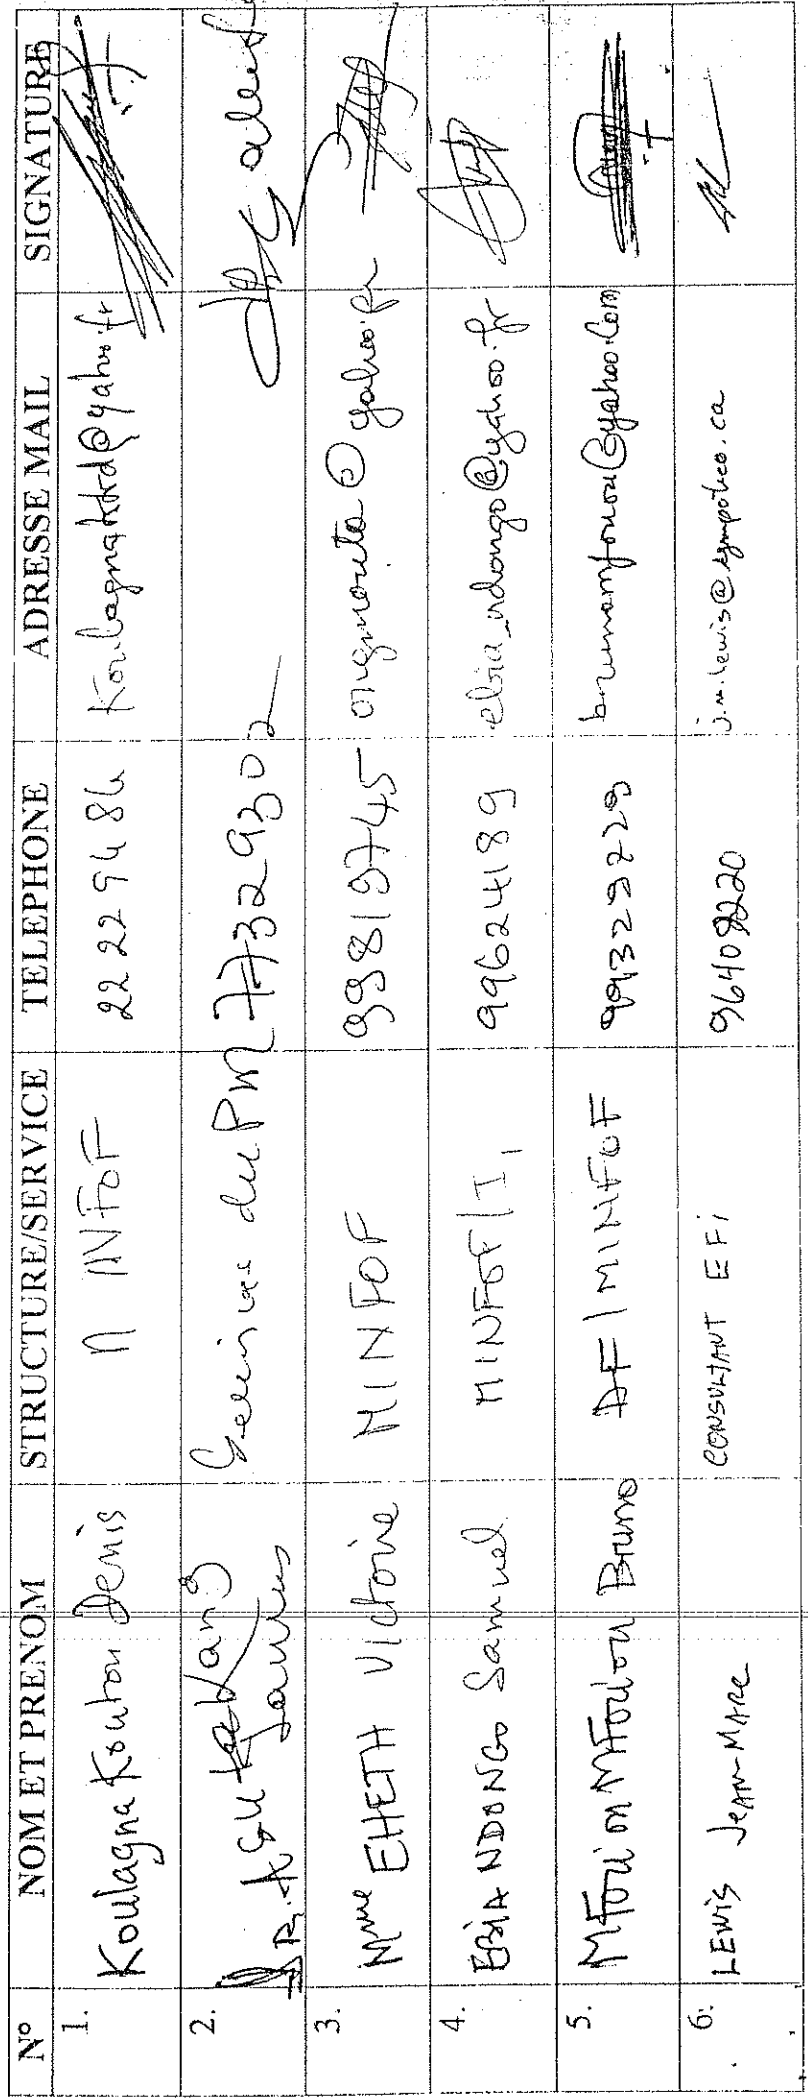 N° NOM ET PRENOM STRUCTURE/SERVICE TELEPHONE ADRESSE MAIL SIGNATURE
1. Koulagna Koutou Denis MINFOF 22 22 94 84 Koulagnaktd@yahoo.fr
2. James Services du PM 77329302
3. Mme EHETH Victoire MINFOF 99819745 @yahoo.fr
4. EBIA NDONGO Samuel MINFOF/I1 99624189 ebia_ndongo@yahoo.fr
5. MFou'ou MFoulou Bruno DF/MINFOF 99329229 brunomfouou@yahoo.com
6. LEWIS JEAN-MARC CONSULTANT EFI 96409220 j.m.lewis@sympatico.ca